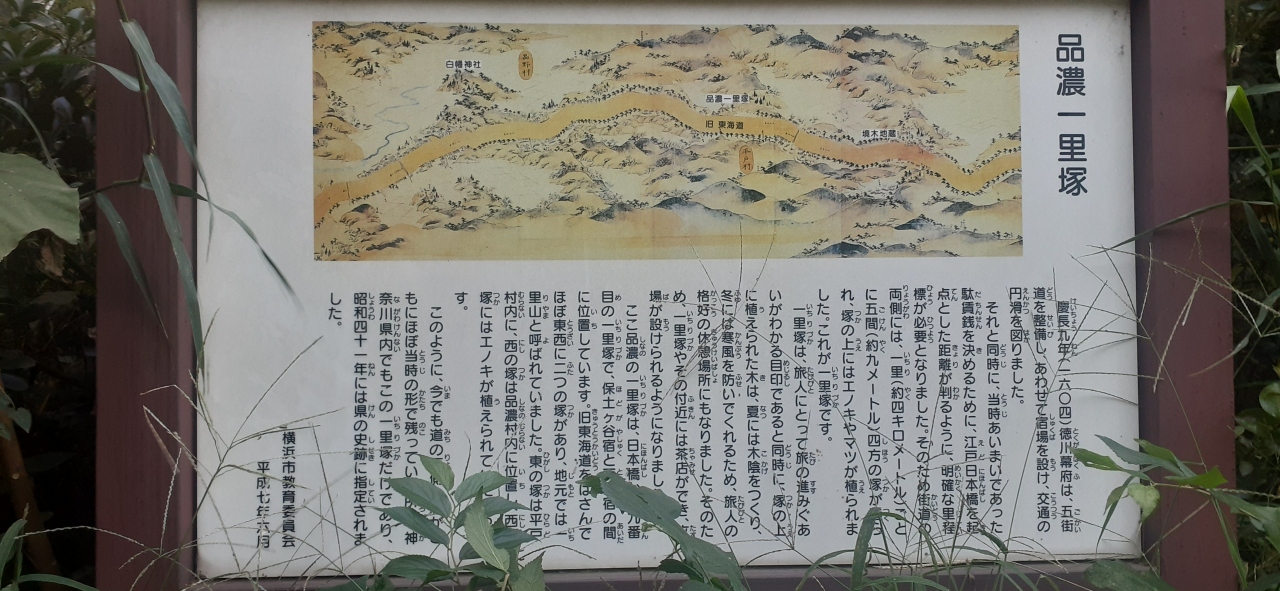 品濃一里塚
白幡神社
品野村
品濃一里塚
旧 東海道
平戸村
境木地蔵
慶長九年(一六〇四)徳川幕府は、五街
道を整備し、あわせて宿場を設け、交通の
円滑を図りました。
それと同時に、当時あいまいであった
駄賃銭を決めるために、江戸日本橋を起
点とした距離が判るように、明確な里程
標が必要となりました。そのため街道の
両側に、一里(約四キロメートル)ごと
に五間(約九メートル)四方の塚が
れ、塚の上にはエノキやマツが植えられま
した。これが一里塚です。
一里塚は、旅人にとって旅の進みぐあ
いがわかる目印であると同時に、塚の上
に植えられた木は、夏には木陰をつくり、
冬には寒風を防いでくれるため、旅人の
格好の休憩場所にもなりました。そのた
め、一里塚やその付近には茶店ができ、
場が設けられるようになりまし
ここ品濃の一里塚は、日本橋 九番
目の一里塚で、保土ケ谷宿と 宿の間
に位置しています。旧東海道をはさんで
ほぼ東西に二つの塚があり、地元では一
里山と呼ばれていました。東の塚は平戸
村内に、西の塚は品濃村内に位置し、西
塚にはエノキが植えられて
す。
このように、今でも道の
もにほぼ当時の形で残ってい 神
奈川県内でもこの一里塚だけであり、
昭和四十一年には県の史跡に指定されま
した。
横浜市教育委員会
平成七年六月